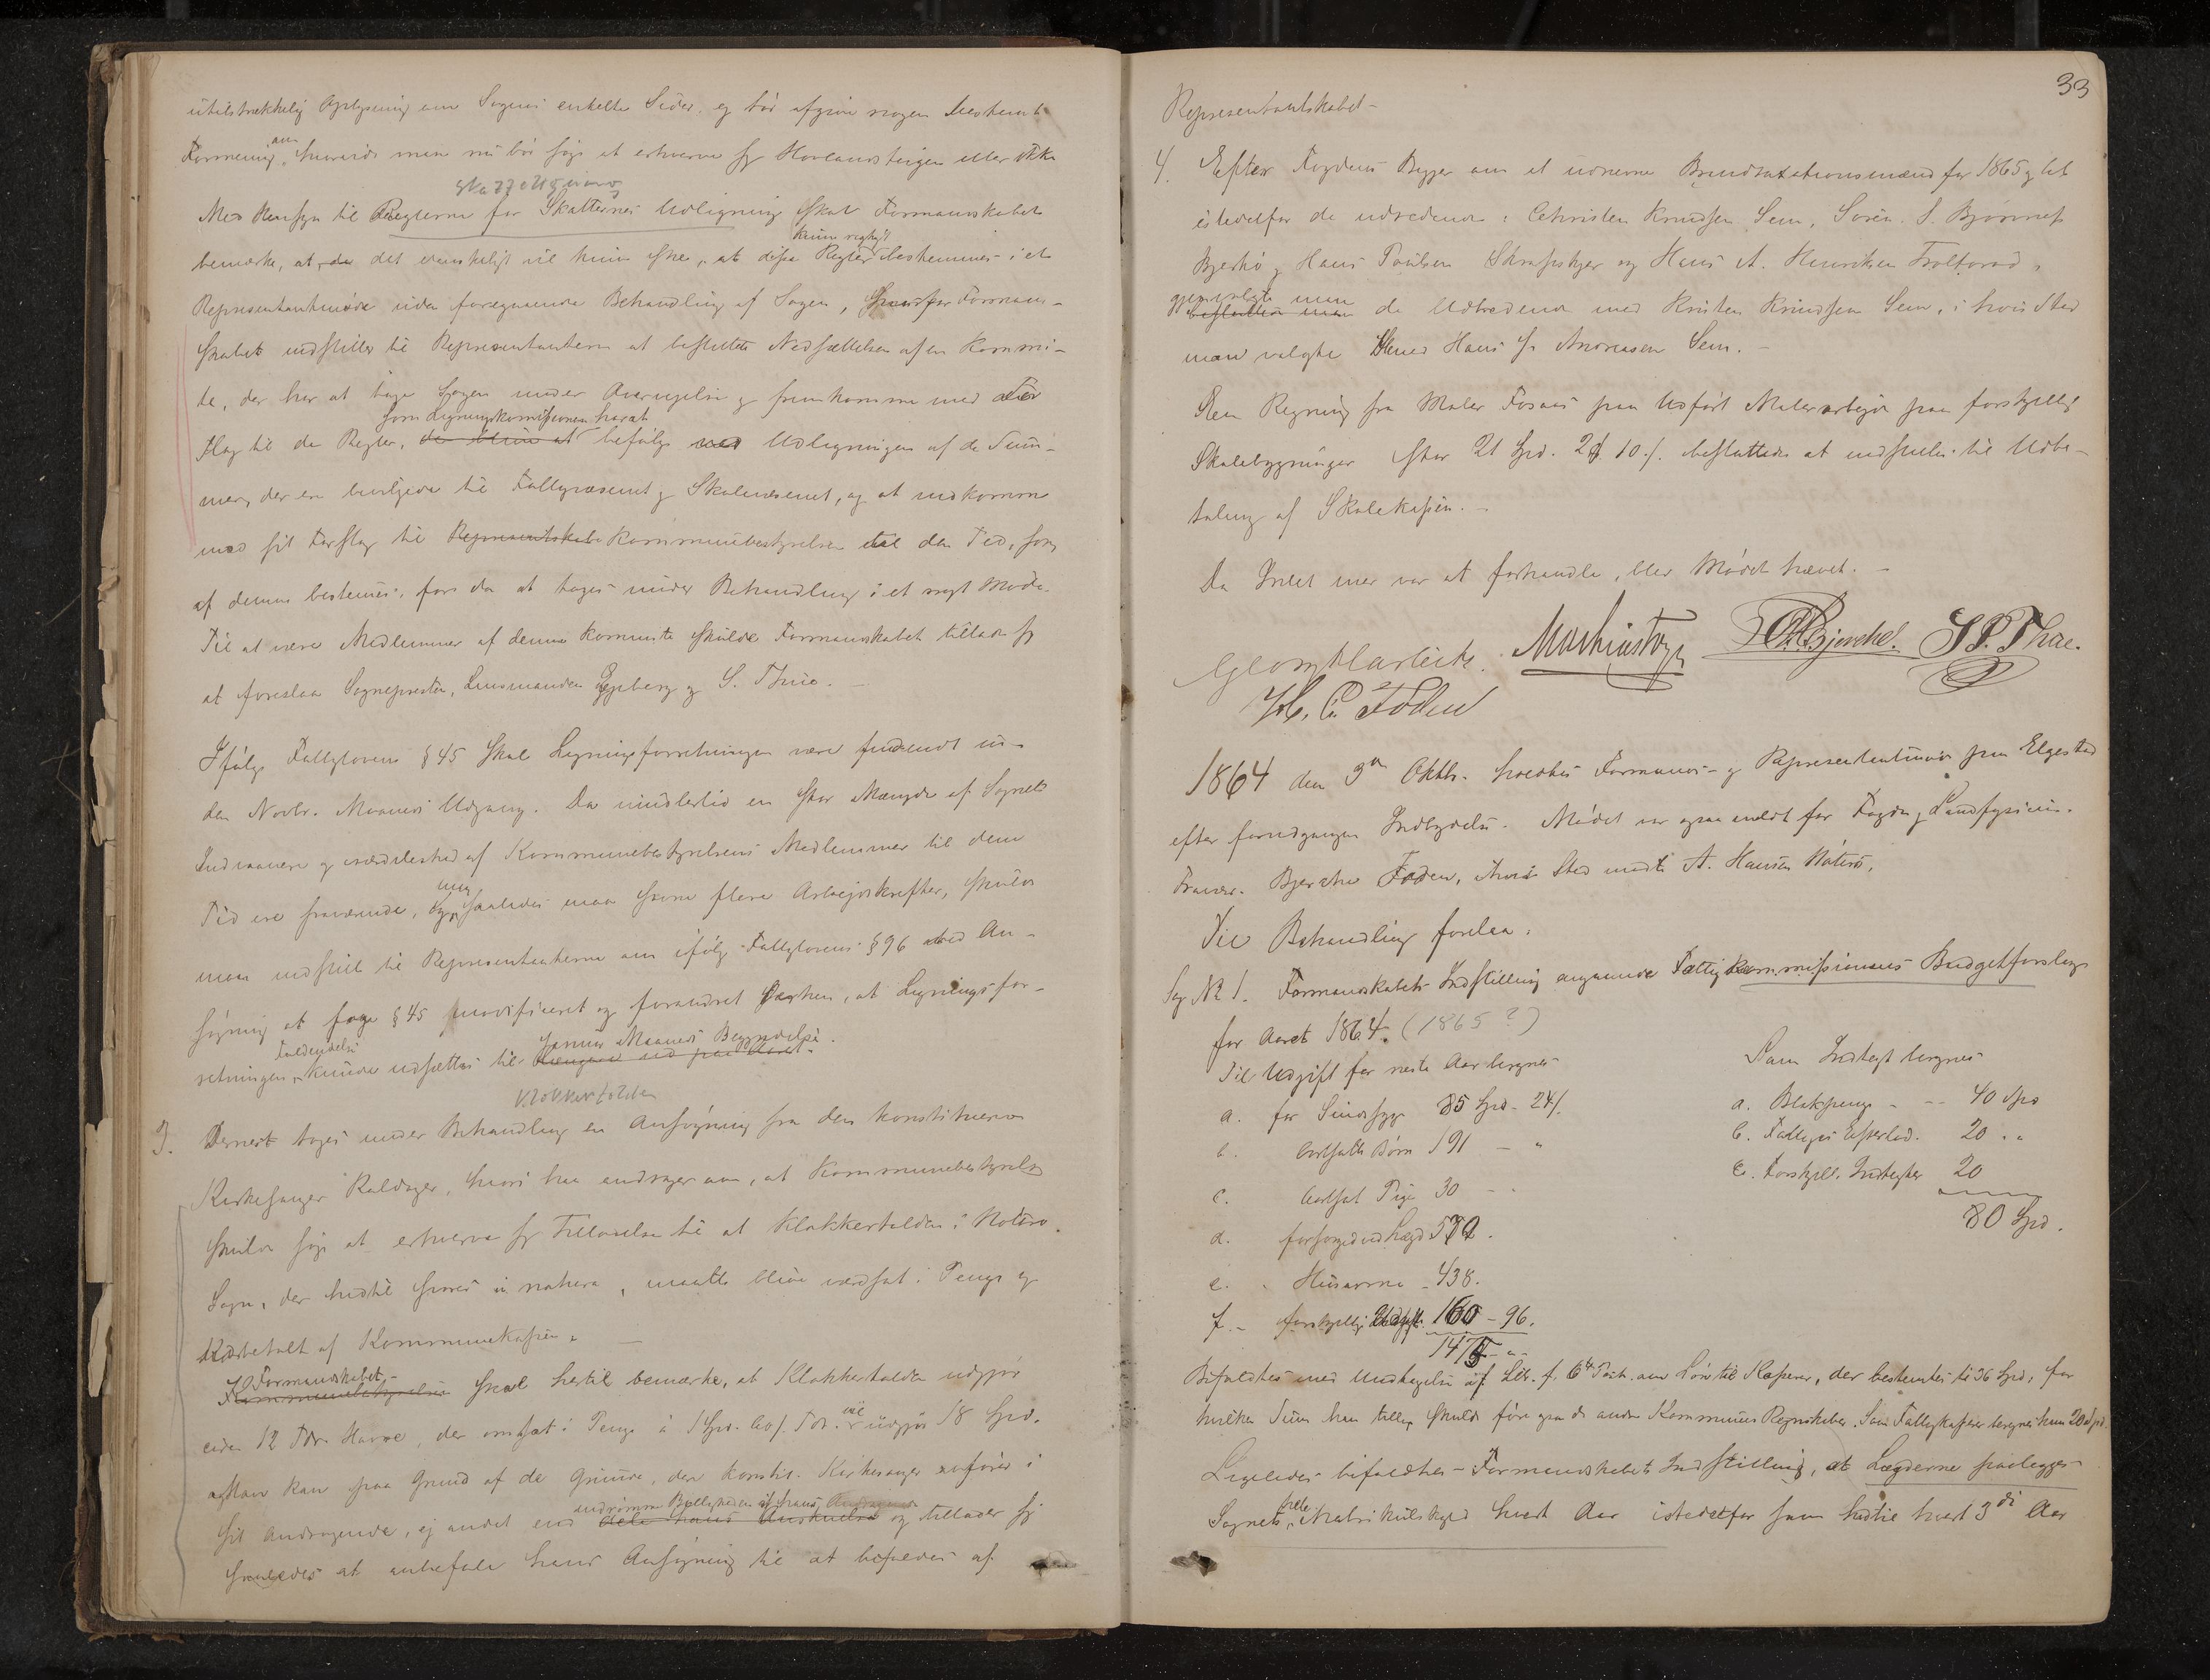 utilstrækkelig Oplysning om Sagens enkelte Sider, og bør afgive nogen bestemt
Formening om, hvorvidt man nu bør søge at erhverve sig Havlandsteigen eller ikke
Skatteligning
Med Hensyn til Reglerne for Skatternes Udligning skal Formandskabet
kun rigtigt
bemærke, at da det vanskeligt vil kunne skee, at disse Regler bestemmes i et
Representantmøde uden foregaaende Behandling af Sagen, hvorfor Formand-
skabet indstiller til Representanterne at beslutte Nedsættelsen af en Kommi-
te, der har at tage Sagen under Overveielse og fremkomme med For
som Ligningskommissionen har at
slag til de Regler, de bliver at befølge ved Udligningen af de Sum-
mer, der ere bevilgede til Fattigvæsenet og Skolevæsenet, og at indkomme
med sit Forslag til Representskabe Kommunebestyrelsen til den Tid, som
af denne bestemmes, for da at tages under Behandling i et nyt Møde.
Til at være Medlemmer af denne Kommite skulde Formandskabet tillade sig
at foreslaa Sognepresten, Lensmanden Egeberg og S. Thue.
Ifølge Fattiglovens § 45 skal Ligningsforretningen være fuldendt in-
den Novbr. Maaneds Udgang. Da imidlertid en stor Mængde af Sognets
Indvaanere og isærdeleshed af Kommunebestyrelsens Medlemmer til denne
Tid ere fraværende, og man saaledes maa savne flere Arbeidskrefter, skulde
man indstille til Representanterne om ifølge Fattiglovens § 96 ved An-
søgning at faae § 45 modificeret og forandret derhen, at Ligningsfor-
Fuldendelse Januar Maaneds Begyndelse.
retningen kunde udsættes til længere ud paa Aaret.
Klokkertolden
3. Dernest toges under Behandling en Ansøgning fra den konstituerede
Kirkesanger Kaldager, hvori han andrager om, at Kommunebestyrelsen
skulde søge at erhverve sig Tilladelse til at Klokkertolden i Nøtterø
Sogn, der hidtil svares in natura, maatte blive værdsat i Penge og
udbetalt af Kommunekassen.
Formandskabet
Kommunebestyrelsen skal hertil bemærke, at Klokkertolden udgjør
circa 12 Tdr. Havre, der omsat i Penge à 1 Spd. 60 s. Td. vil udgjør 18 Spd.
Man kan paa Grund af de Grunde, den konstit. Kirkesanger anfører i
indrømme Billigheden af hans Andragende
sit Andragende, ej andet end dele hans Anskuelse og tillader sig
saaledes at anbefale hans Ansøgning til at bifaldes af
33
Representantskabet-
4. Efter Fogdens Begjer om at udnevne Brandtaxationsmænd for 1865 og til
istedetfor de udtrædende: Christen Knudsen Sem, Søren S. Bjørnnes
Bjerkø, Hans Paulsen Skrapskjer og Hans A. Henriksen Tralforød,
gjenvalgte man
besluttede man de Udtrædende med Kristen Knudsen Sem, i hvis Sted
man valgte Hans J. Andreasen Sem.
Een Regning fra Maler Fosnes paa udført Malerarbeide paa forskjellige
Skolebygninger stor 21 Spd. 2 10 s. besluttedes at indstilles til Udbe-
taling af Skolekassen.
Da Intet mer var at forhandle, blev Mødet hævet.
S. P. Thue.
H. C. Foden
1864 den 3de Oktb. holdtes Formands- og Representantmøde paa Elgestad
efter forudgaaen Indbydelse. Mødet var ogsaa meldt for Fogden og Landfysicus.
Fravær. Bjerche Foden, i hvis Sted mødte A. Hansen Nøterø.
Til Behandling forelaa:
Sag No 1. Formandskabets Indstilling angaaende Fattigkommissionens Budgetforslag
for Aaret 1864. (1865?)
Til Udgift for næste Aar beregnes
a. for Sindssyge 85 Spd. 24 s.
b. bortsatte Børn 191 - "
c. bortsat Pige 30 - -
d. forsørged ved Lægd 570.
e. " Husarme 438.
f. - forskjellige Udgifter 160 - 96.
1475 - "-
Som Indtægt beregnes
a. Blikpenge - -- 40 Spd
b. Fattiges Efterlad. 20 - "
c. Forskjell. Indtægter 20
80 Spd.
Bifaldtes med Undtagelse af Litr. f. 6te Post. om Løn til Kasserer, der bestemtes til 36 Spd, for
hvilken Sum han tillige skulde føre ogsaa de andre Kommunes Regnskaber. Som Fattigkasserer beregnes ham 20 Spd.
Ligeledes bifaldtes Formandskabets Indstilling, at Lægderne paalægges
Sognets hele Matrikulskyld hvert Aar istedetfor som hidtil hvert 3die Aar